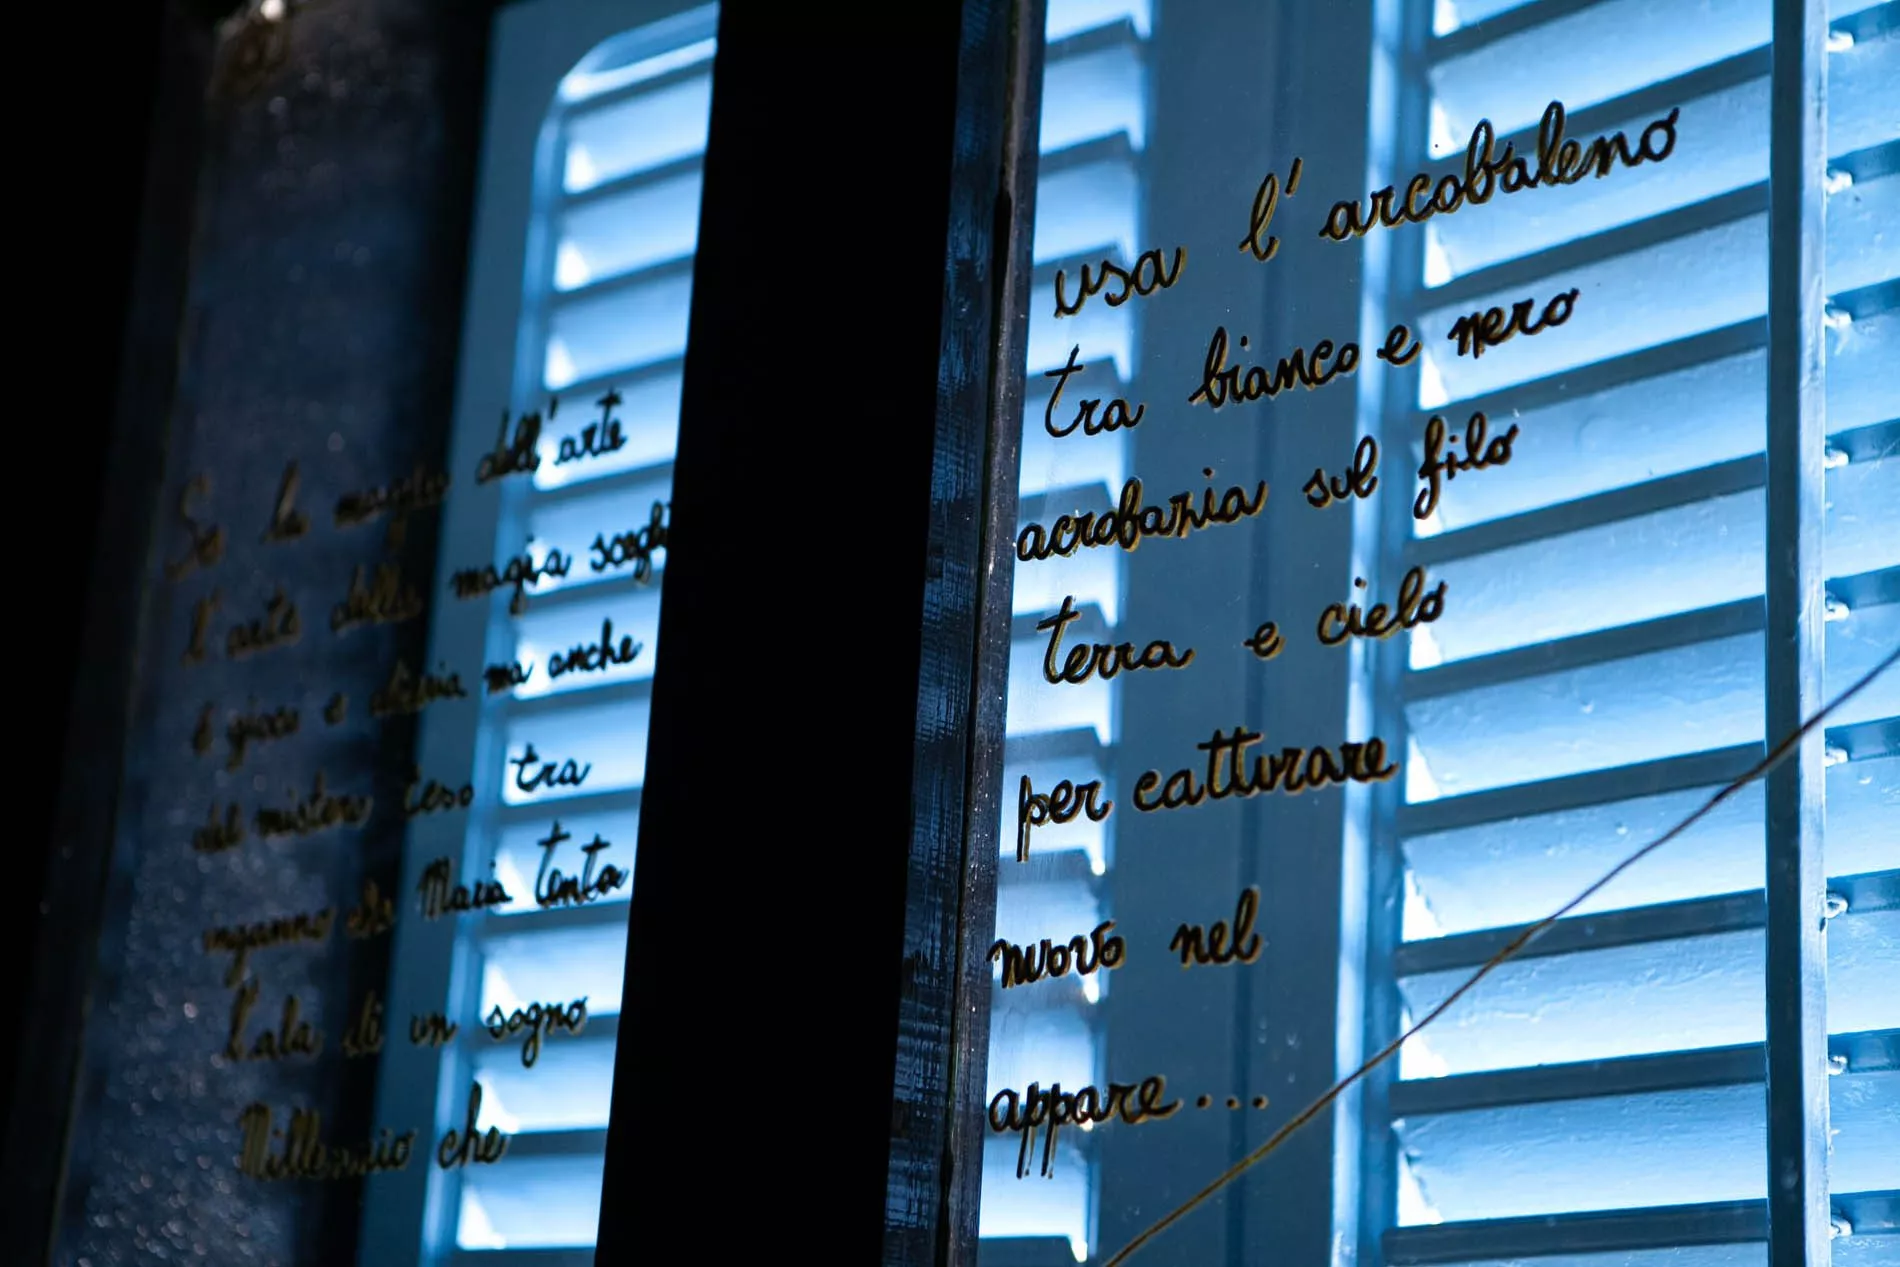 Se la magia dell'arte
l'arte della magia
è gioco e ma anche
del mistero teso tra
inganno che Maria tenta
l'ala di un sogno
Millennio che
usa l'arcobaleno
tra bianco e nero
acrobazia sul filo
terra e cielo
per catturare
nuovo nel
appare...